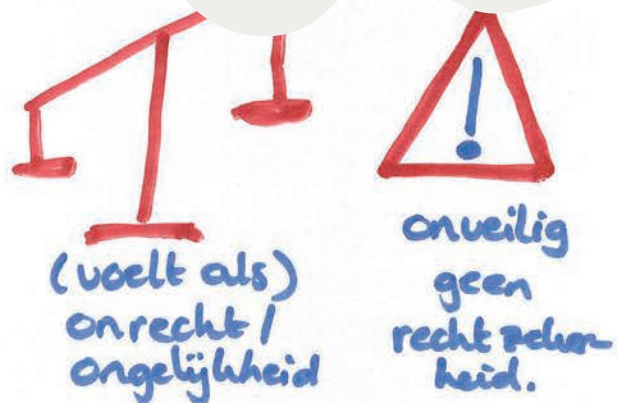 (voelt als)
onrecht /
ongelijkheid
!
onveilig
geen
rechtzeker-
heid.